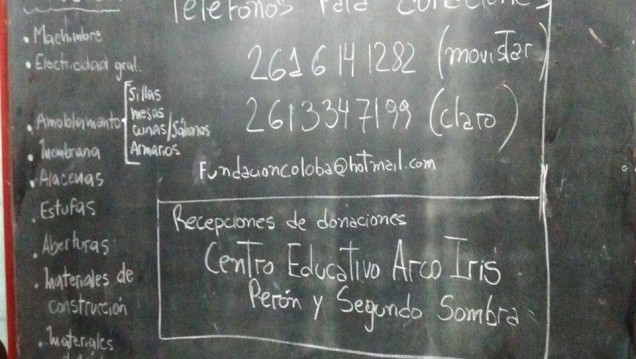 Teléfonos Para
• Machimbre
• Electricidad gral.
• Amoblamiento
Sillas
mesas
cunas/Sábanas
Armarios
• Membrana
• Alacenas
• Estufas
• Aberturas
• Materiales de
construcción
• Materiales
261 6 14 1282 (movistar)
2613347199 (claro)
Fundacioncoloba@hotmail.com
Recepciones de donaciones
Centro Educativo Arco Iris
Perón y Segundo Sombra